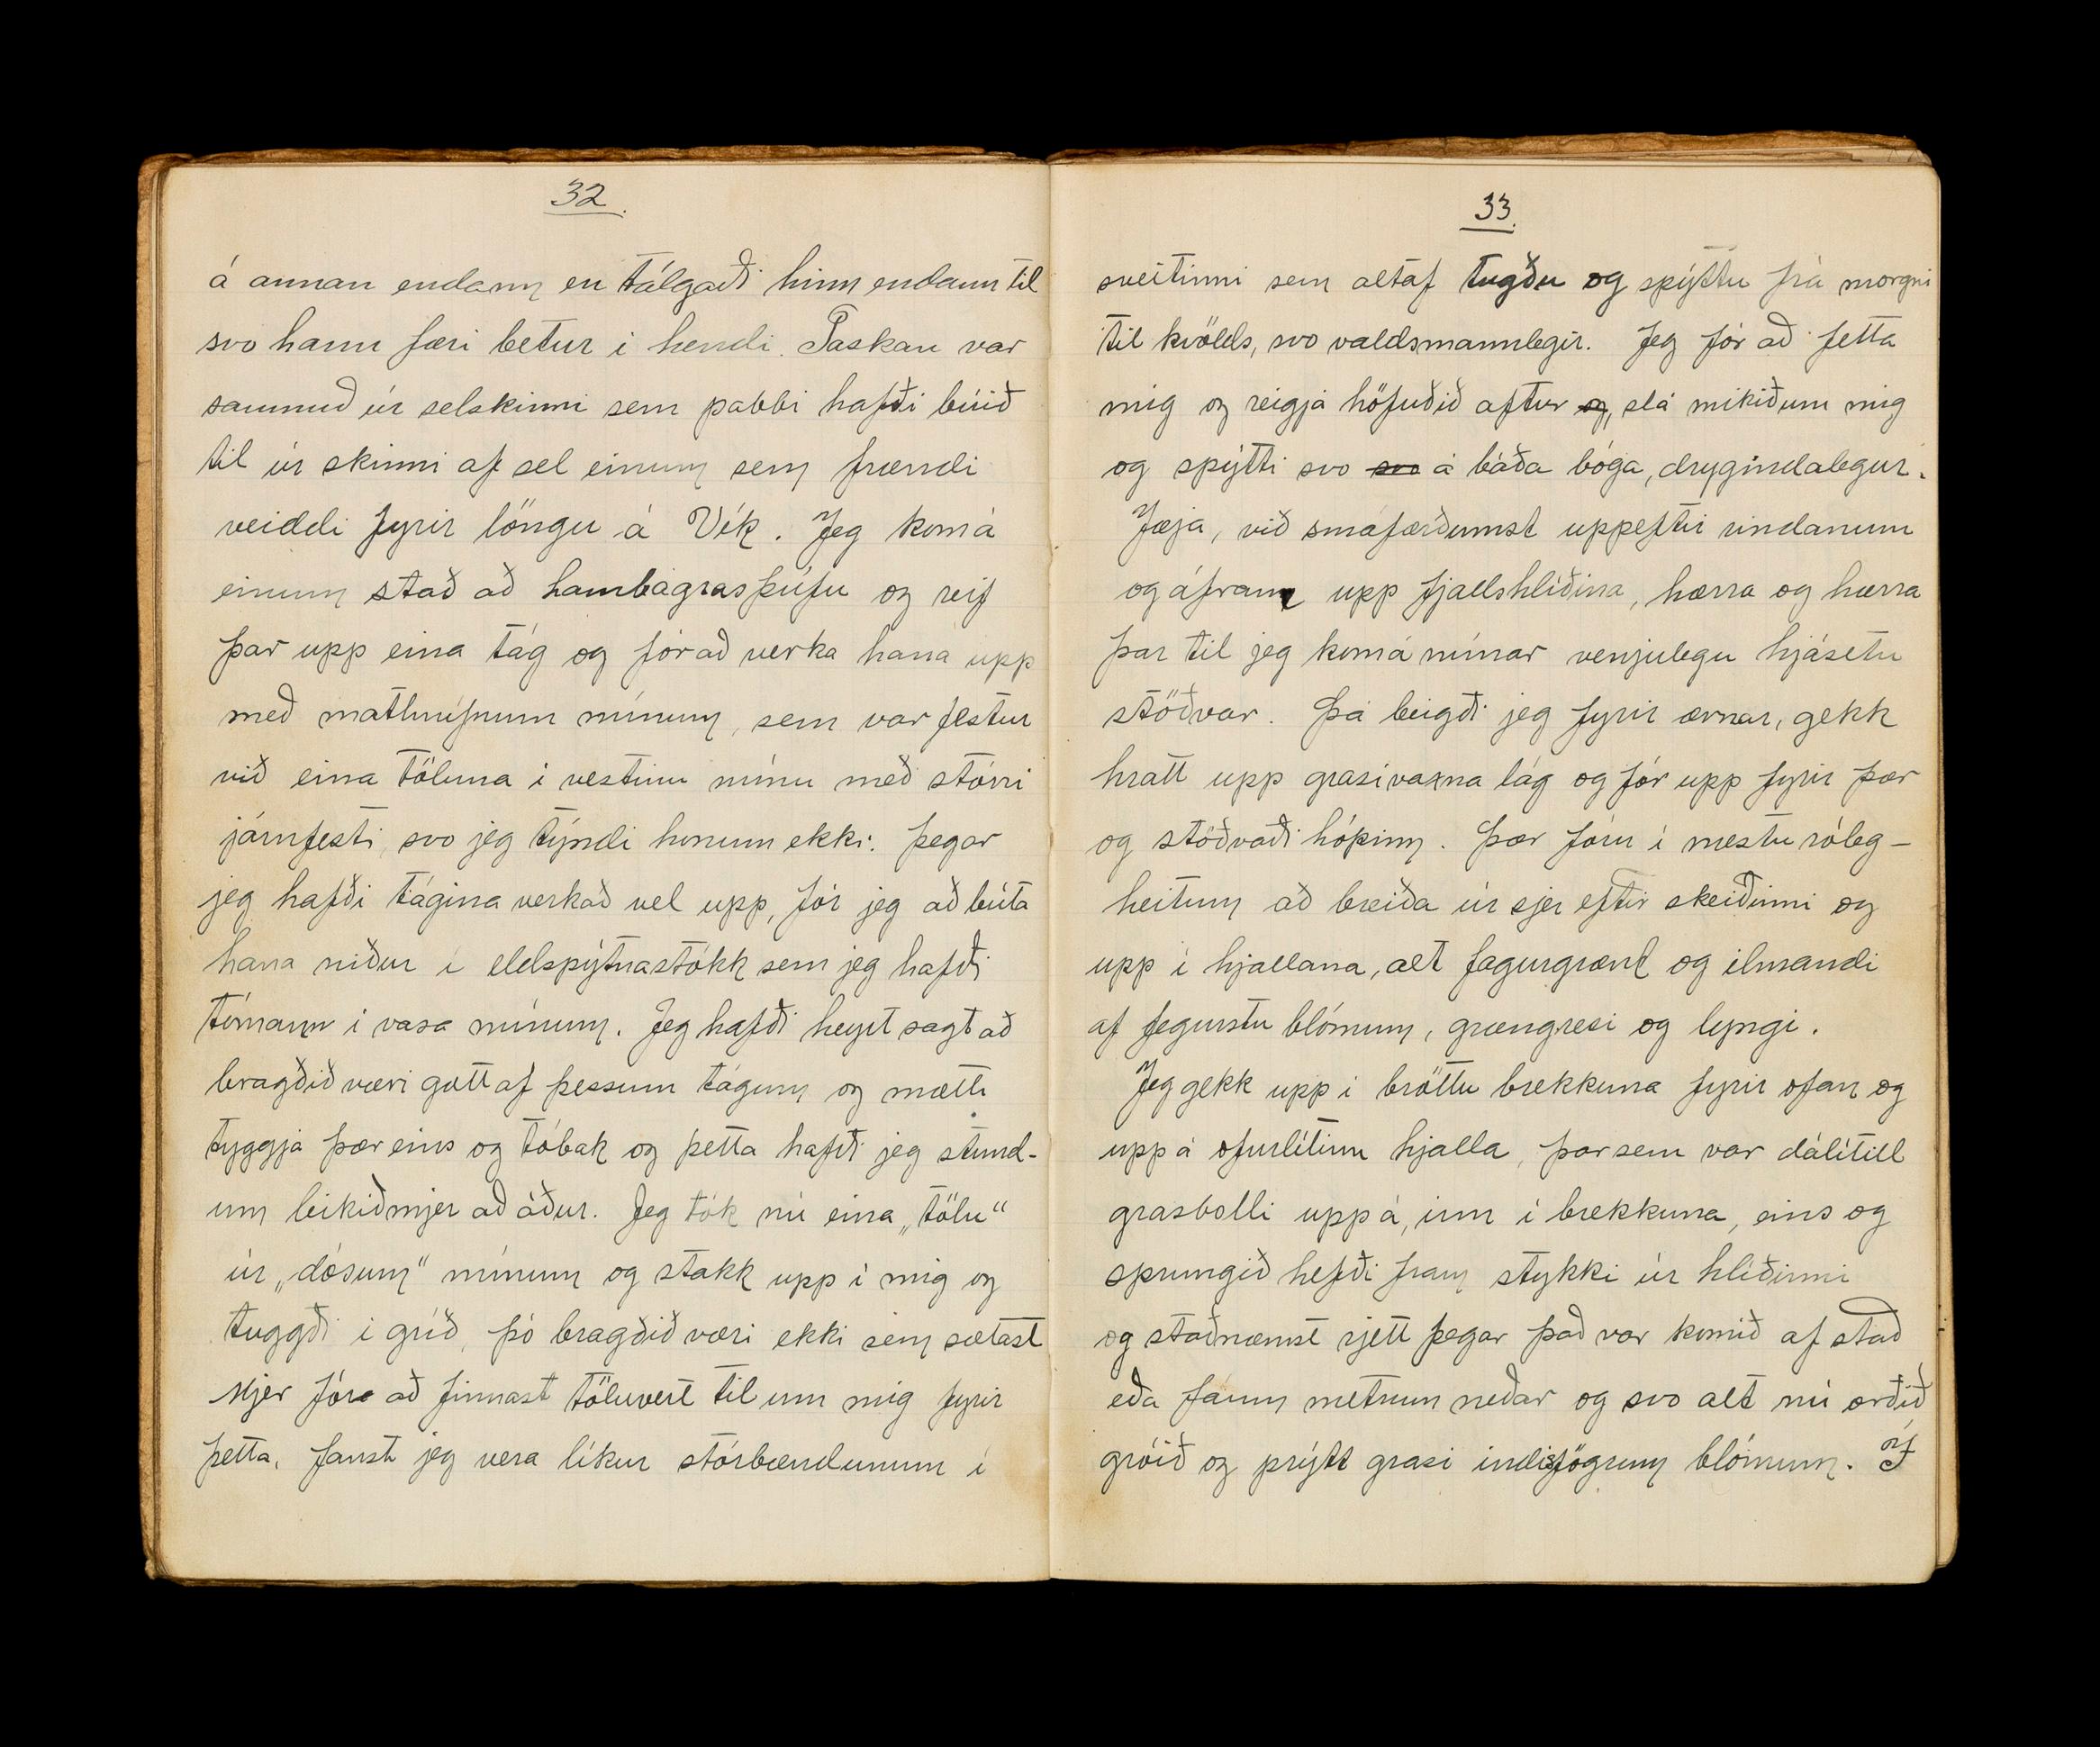 32.
á annan endann en tálgaði hinn endann til
svo hann færi betur í hendi. Taskan var
saumuð úr selskinni sem pabbi hafði búið
til úr skinni af sel einum sem frændi
veiddi fyrir löngu á Vík. Jeg kom á
einum stað að lambagrasþúfu og reif
þar upp eina tág og fór að verka hana upp
með mathnífnum mínum, sem var festur
við eina töluna í vestinu mínu með stórri
járnfesti, svo jeg týndi honum ekki. Þegar
jeg hafði tágina verkað vel upp, fór jeg að búta
hana niður í eldspýtnastokk sem jeg hafði
tómann í vasa mínum. Jeg hafði heyrt sagt að
bragðið væri gott af þessum tágum og mætti
tyggja þær eins og tóbak og þetta hafði jeg stund-
um leikið mjer að áður. Jeg tók nú eina „tölu“
úr „dósum“ mínum og stakk upp í mig og
tuggði í gríð, þó bragðið væri ekki sem sætast
Mjer fór að finnast töluvert til um mig fyrir
þetta, fanst jeg vera líkur stórbændunum í
33.
sveitinni sem altaf tugðu og spýttu frá morgni
til kvölds, svo valdsmannlegir. Jeg fór að fetta
mig og reigja höfuðið aftur og, slá mikið um mig
og spýtti svo svo á báða bóga, drygindalegur.
Jæja, við smáfærðumst uppeftir rindanum
og áfram upp fjallshlíðina, hærra og hærra
þar til jeg kom á mínar venjulegu hjásetu
stöðvar. Þá beigði jeg fyrir ærnar, gekk
hratt upp grasivaxna lág og fór upp fyrir þær
og stöðvaði hópinn. Þær fóru í mestu róleg-
heitum að breiða úr sjer eftir skeiðinni og
upp í hjallana, alt fagurgrænt og ilmandi
af fegurstu blómum, grængresi og lyngi.
Jeg gekk upp í bröttu brekkuna fyrir ofan og
upp á ofurlítinn hjalla, þar sem var dálítill
grasbolli upp á, inn í brekkuna, eins og
sprungið hefði fram stykki úr hlíðinni
og staðnæmst rjett þegar það var komið af stað
eða fáum metrum neðar og svo alt nú orðið
gróið og prýtt grasi indisfögrum blómum. Í